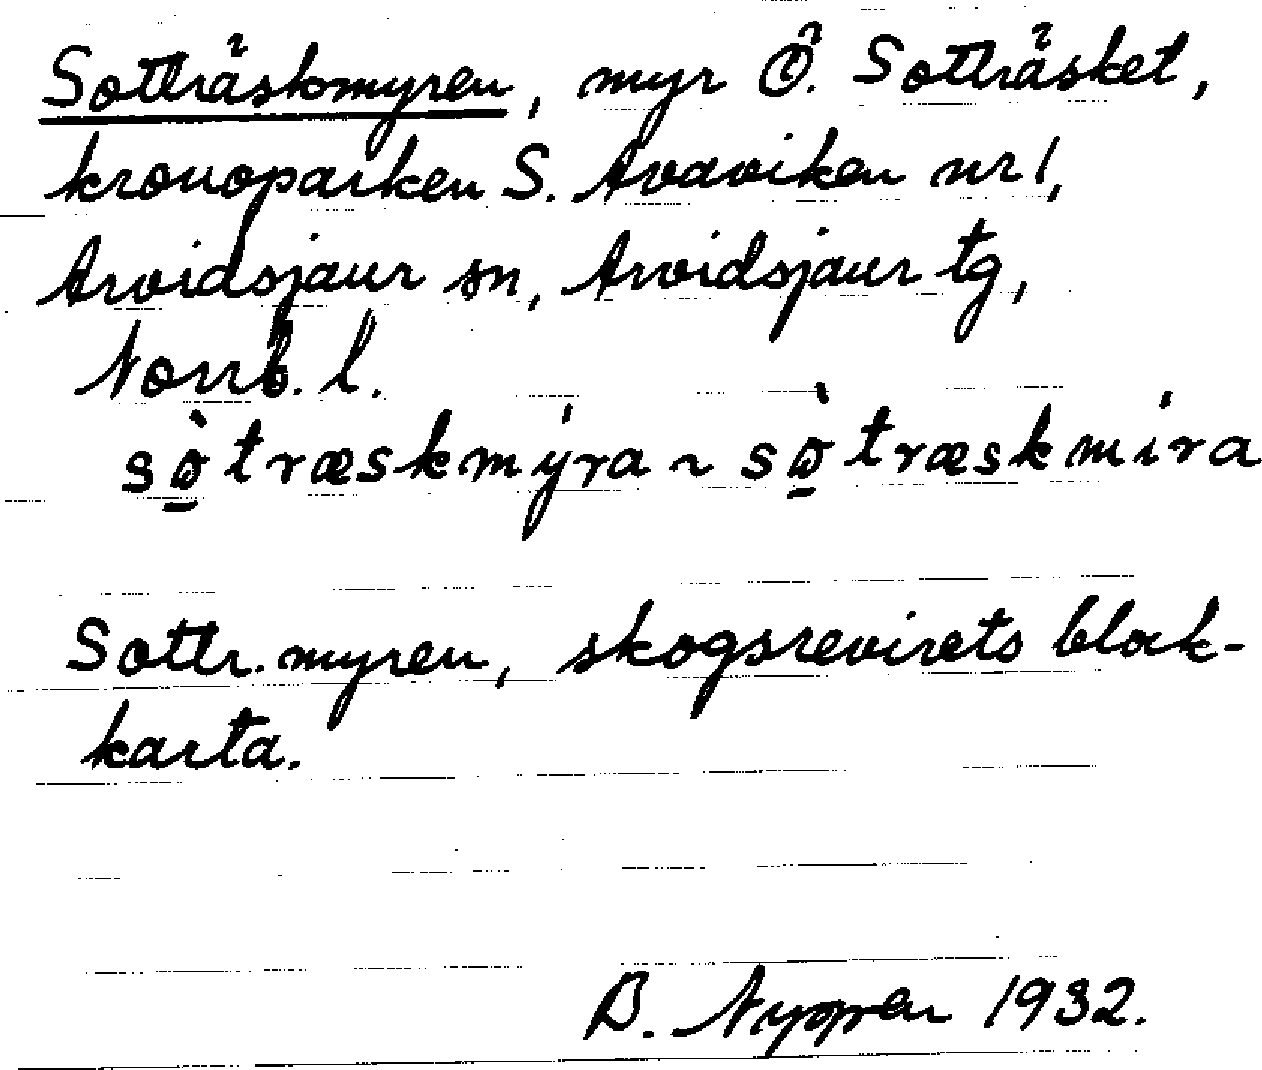 Sotträskmyren, myr Ö. Sotträsket,
kronoparken S. Avaviken nr 1,
Arvidsjaur sn, Arvidsjaur tg,
Norrb. l.
sò̱træskmýra ~ sò̱træskmíra
Sottr. myren, skogsrevirets block-
karta.
B. Nygren 1932.